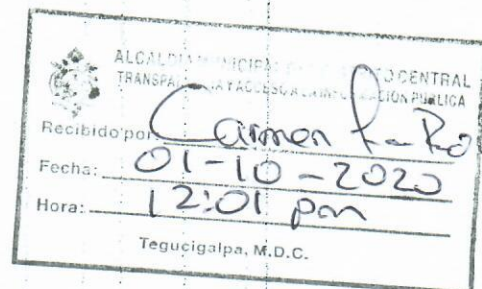 ALCALDIA MUNICIPAL CENTRAL
TRANSPARENCIA Y ACCESO A LA INFORMACIÓN PUBLICA
Recibido por: Carmen
Fecha: 01-10-2020
Hora: 12:01 pm
Tegucigalpa, M.D.C.